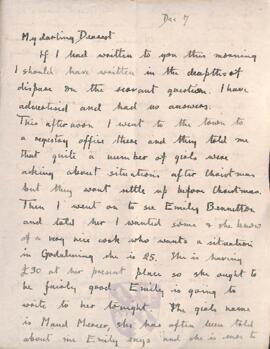 Dec 7
My darling Dearest
If I had written to you this morning
I should have written in the deapths of
dispare on the servant question. I have
advertised and had no answers.
This afternoon I went to the town to
a regestry office there and they told me
that quite a number of girls were
asking about situations after Christmas
but they wont settle up before Christmas.
Then I went on to see Emily Bennetton
and told her I wanted some & she knew
of a very nice cook who wants a situation
in Godalming she is 25. She is having
£30 at her present place so she ought to
be fairly good. Emily is going to
write to her tonight. The girls name
is Maud Mercer, she has often been told
about me Emily says and she is most to